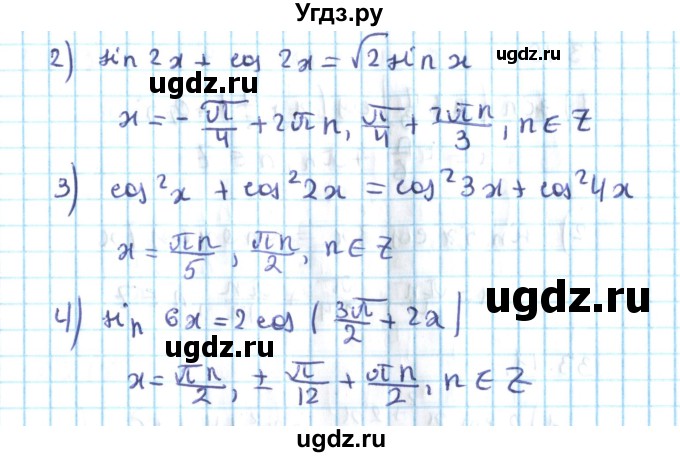 Угдз.ру
2) sin 2x + cos 2x = √2 sin x
ugdz.ru
ugdz.ru
x = - π/4 + 2πn, π/4 + 2πn/3, n ∈ Z
3) cos²x + cos²2x = cos²3x + cos²4x
x = πn/5, πn/2, n ∈ Z
ugdz.ru
4) sin 6x = 2 cos (3π/2 + 2x)
ugdz.ru
x = πn/2, ± π/12 + πn/2, n ∈ Z
ugdz.ru